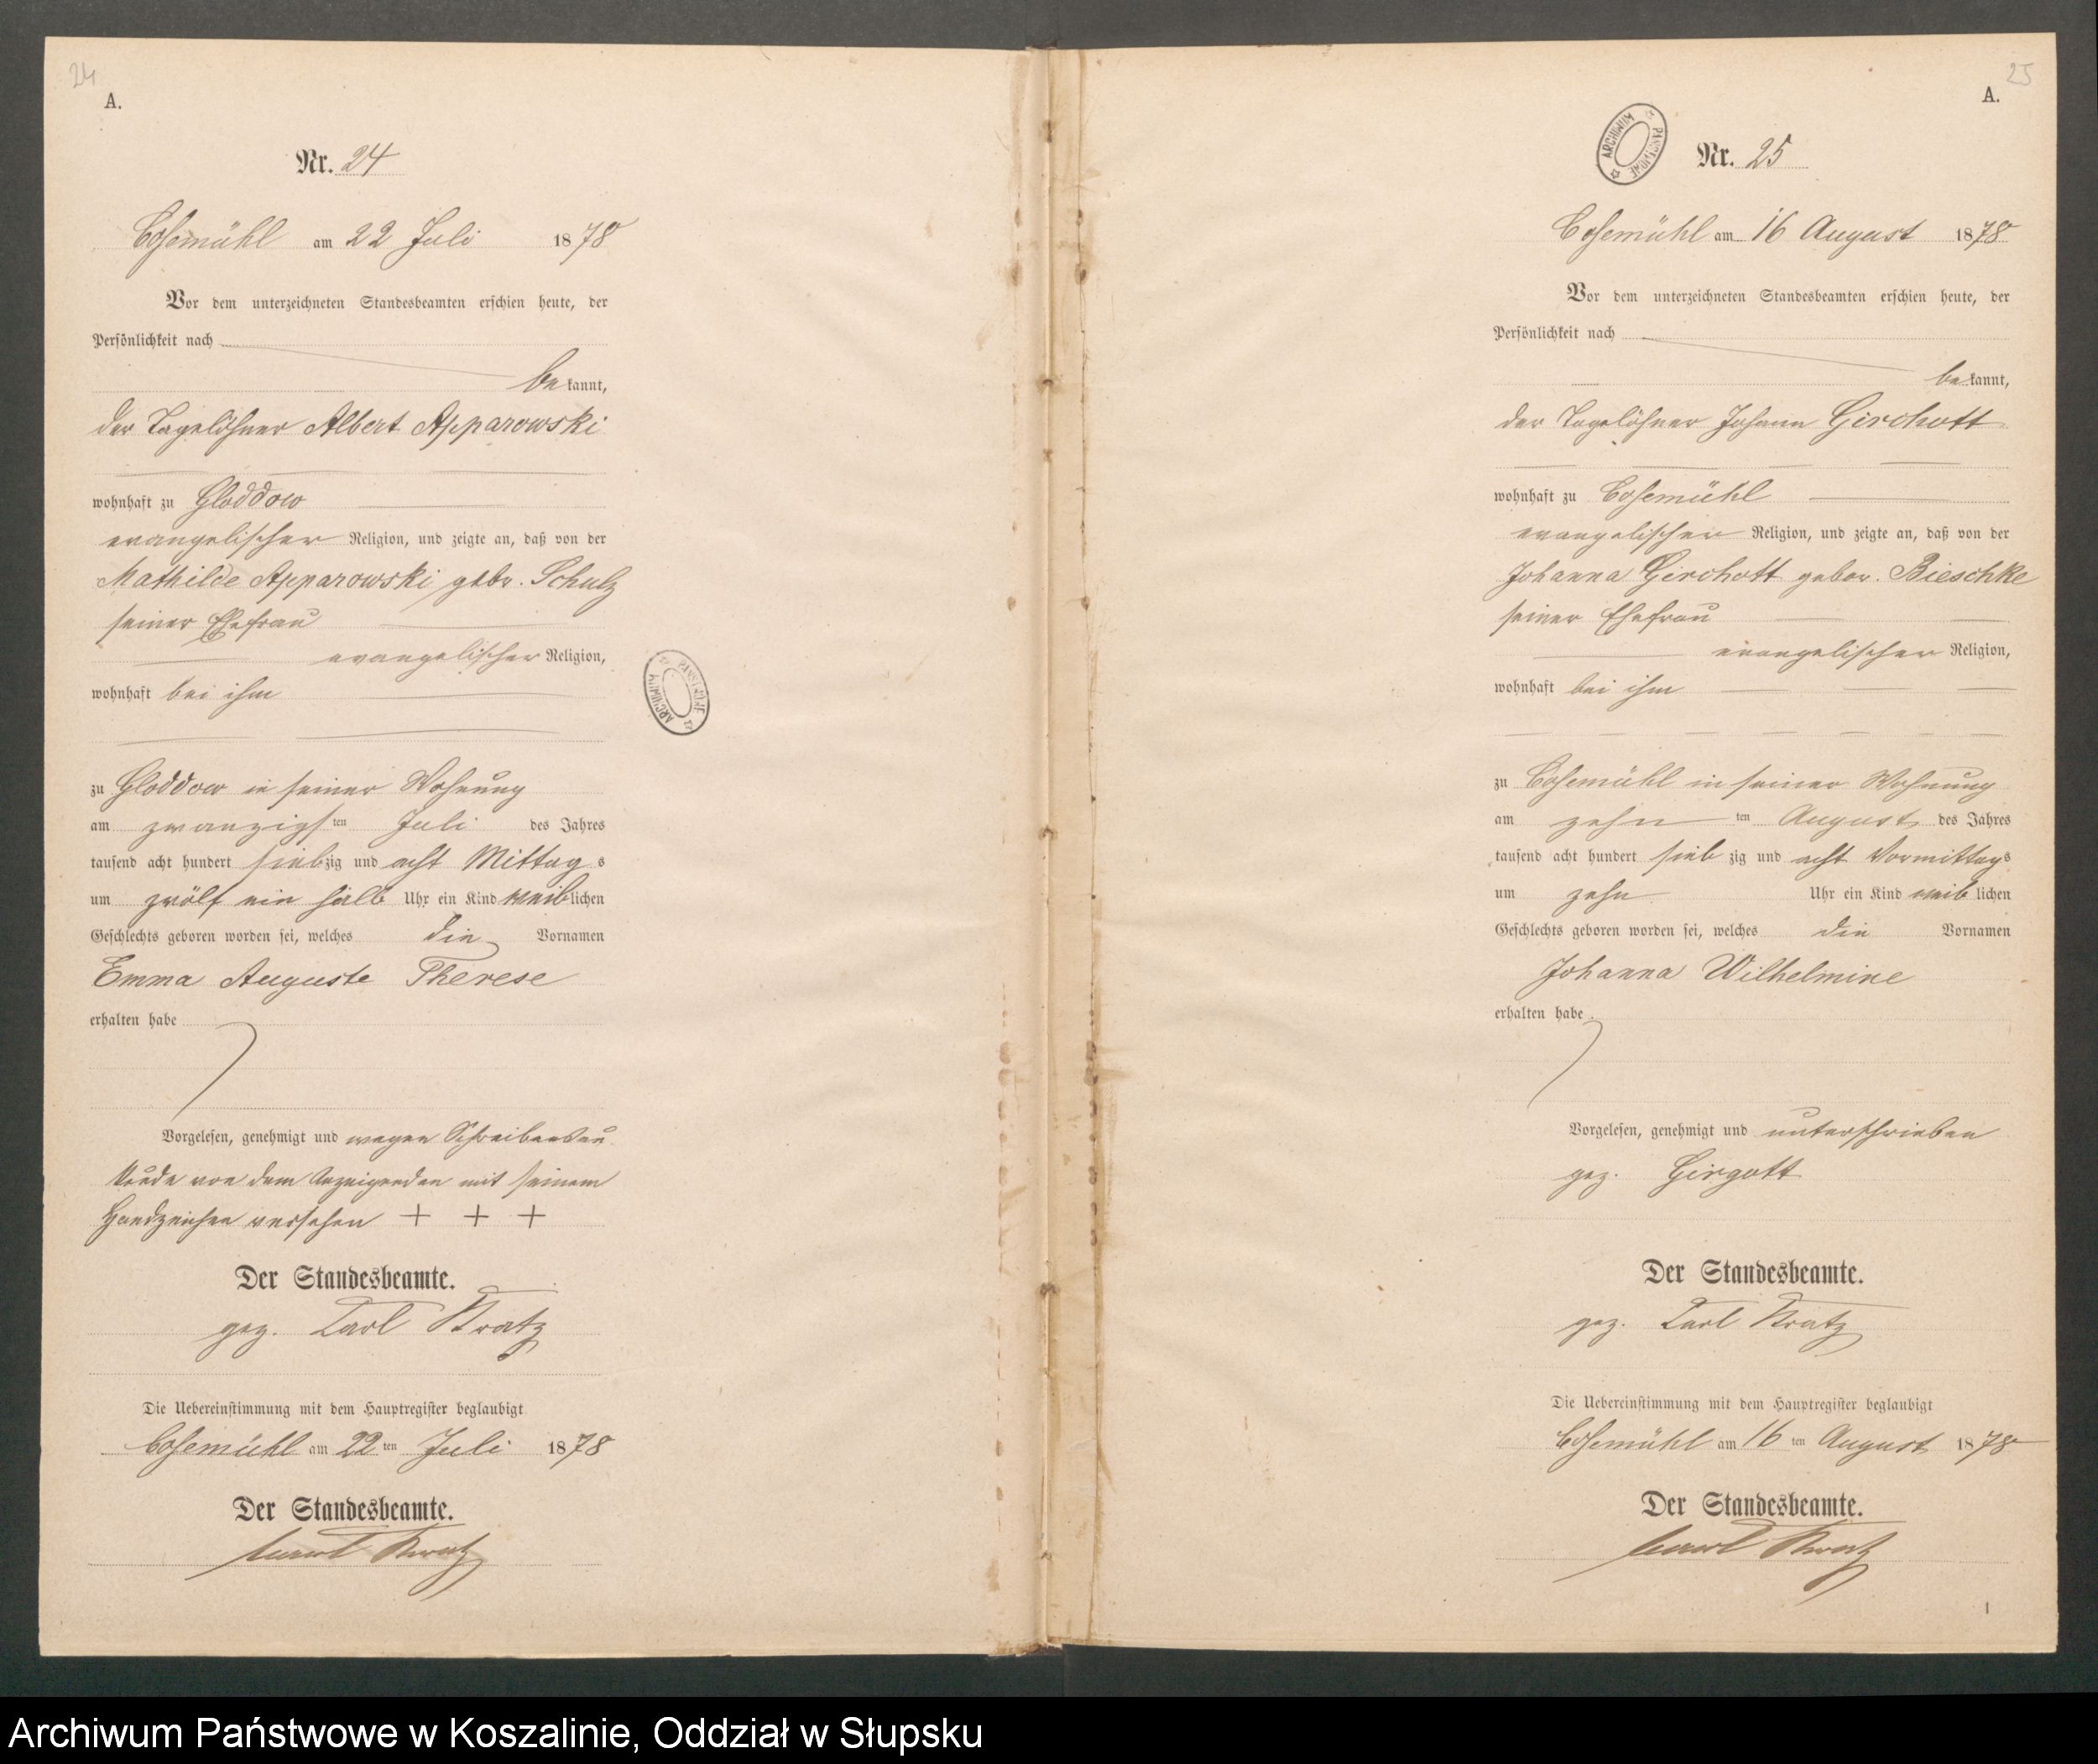 24
A.
Nr. 24
Cosemühl am 22 Juli 1878
Vor dem unterzeichneten Standesbeamten erschien heute, der
Persönlichkeit nach
bekannt,
der Tagelöhner Albert Apparowski
wohnhaft zu Gloddow
evangelischer Religion, und zeigte an, daß von der
Mathilde Apparowski gebr. Schulz
seiner Ehefrau
evangelischer Religion,
wohnhaft bei ihm
zu Gloddow in seiner Wohnung
am zwanzigsten Juli des Jahres
tausend acht hundert siebzig und acht Mittags
um zwölf ein halb Uhr ein Kind weiblichen
Geschlechts geboren worden sei, welches die Vornamen
Emma Auguste Therese
erhalten habe
Vorgelesen, genehmigt und wegen Schreibensun
kunde von dem Anzeigenden mit seinem
Handzeichen versehen + + +
Der Standesbeamte.
gez. Carl Kratz
Die Uebereinstimmung mit dem Hauptregister beglaubigt
Cosemühl am 22ten Juli 1878
Der Standesbeamte.
Carl Kratz
ARCHIWUM PAŃSTWOWE
25
A.
ARCHIWUM PAŃSTWOWE
Nr. 25
Cosemühl am 16 August 1878
Vor dem unterzeichneten Standesbeamten erschien heute, der
Persönlichkeit nach
bekannt,
der Tagelöhner Johann Girchott
wohnhaft zu Cosemühl
evangelischer Religion, und zeigte an, daß von der
Johanna Girchott gebor. Bieschke
seiner Ehefrau
evangelischer Religion,
wohnhaft bei ihm
zu Cosemühl in seiner Wohnung
am zehnten August des Jahres
tausend acht hundert siebzig und acht Vormittags
um zehn Uhr ein Kind weiblichen
Geschlechts geboren worden sei, welches die Vornamen
Johanna Wilhelmine
erhalten habe.
Vorgelesen, genehmigt und unterschrieben
gez. Girgott
Der Standesbeamte.
gez. Carl Kratz
Die Uebereinstimmung mit dem Hauptregister beglaubigt
Cosemühl am 16ten August 1878
Der Standesbeamte.
Carl Kratz
1
Archiwum Państwowe w Koszalinie, Oddział w Słupsku